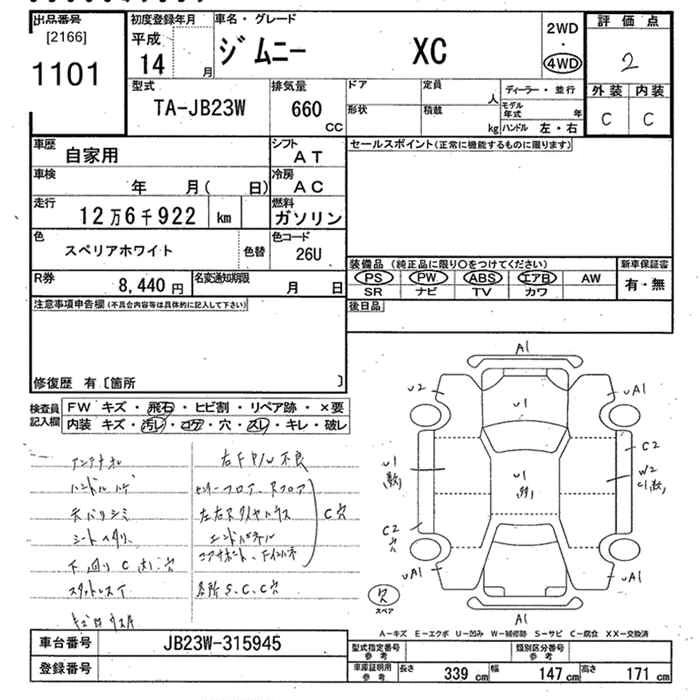 出品番号 初度登録年月 車名・グレード 2WD・4WD 評価点
[2166]
1101 平成14 月 ジムニー XC 2
型式 排気量 ドア 定員 人 ディーラー・並行 外装 内装
TA-JB23W 660 CC 形状 積載 kg モデル年式 年 ハンドル 左・右 C C
車歴 自家用 シフト AT セールスポイント(正常に機能するものに限ります)
車検 年 月( 日) 冷房 AC
走行 12万6千922 km 燃料 ガソリン
色 スペリアホワイト 色替 色コード 26U
装備品 (純正品に限り○をつけてください) 新車保証書
PS PW ABS エアB AW 有・無
SR ナビ TV カワ
R券 8,440円 名変通知期限 月 日
後日品
注意事項申告欄(不具合内容等は具体的に記入して下さい)
修復歴 有〔箇所 〕
検査員記入欄 FW キズ・飛石・ヒビ割・リペア跡・×要
内装 キズ・汚レ・コゲ・穴・スレ・キレ・破レ
アンテナ
右F P/W 不良
ハンドルハゲ
天バリシミ
シートヘタリ
下回りC 穴
スタッドレス
センターフロア、Rフロア
左右Rタイヤハウス
エンドパネル
C穴
各所S、C、C穴
A1
U2
UA1
U1
U1
U1
C2
W2
C2
穴
UA1
UA1
A1
欠
スペア
A-キズ E-エクボ U-凹み W-補修跡 S-サビ C-腐食 XX-交換済
車台番号 JB23W-315945
型式指定番号 参考 類別区分番号 参考
登録番号
車庫証明用 参考 長さ 339 cm 幅 147 cm 高さ 171 cm